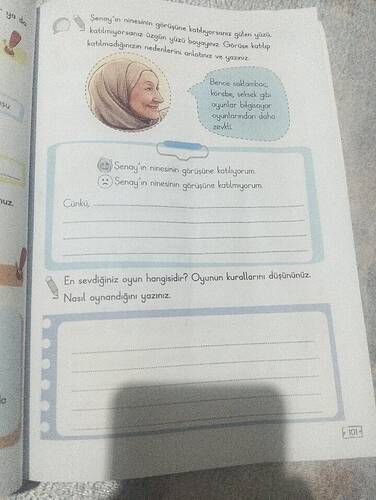 ya da
Şenay'ın ninesinin görüşüne katılıyorsanız gülen yüzü,
katılmıyorsanız üzgün yüzü boyayınız. Görüşe katılıp
katılmadığınızın nedenlerini anlatınız ve yazınız.
Bence saklambaç,
körebe, seksek gibi
oyunlar bilgisayar
oyunlarından daha
zevkli.
Şenay'ın ninesinin görüşüne katılıyorum.
Şenay'ın ninesinin görüşüne katılmıyorum.
nuz.
Çünkü,
En sevdiğiniz oyun hangisidir? Oyunun kurallarını düşününüz.
Nasıl oynandığını yazınız.
101